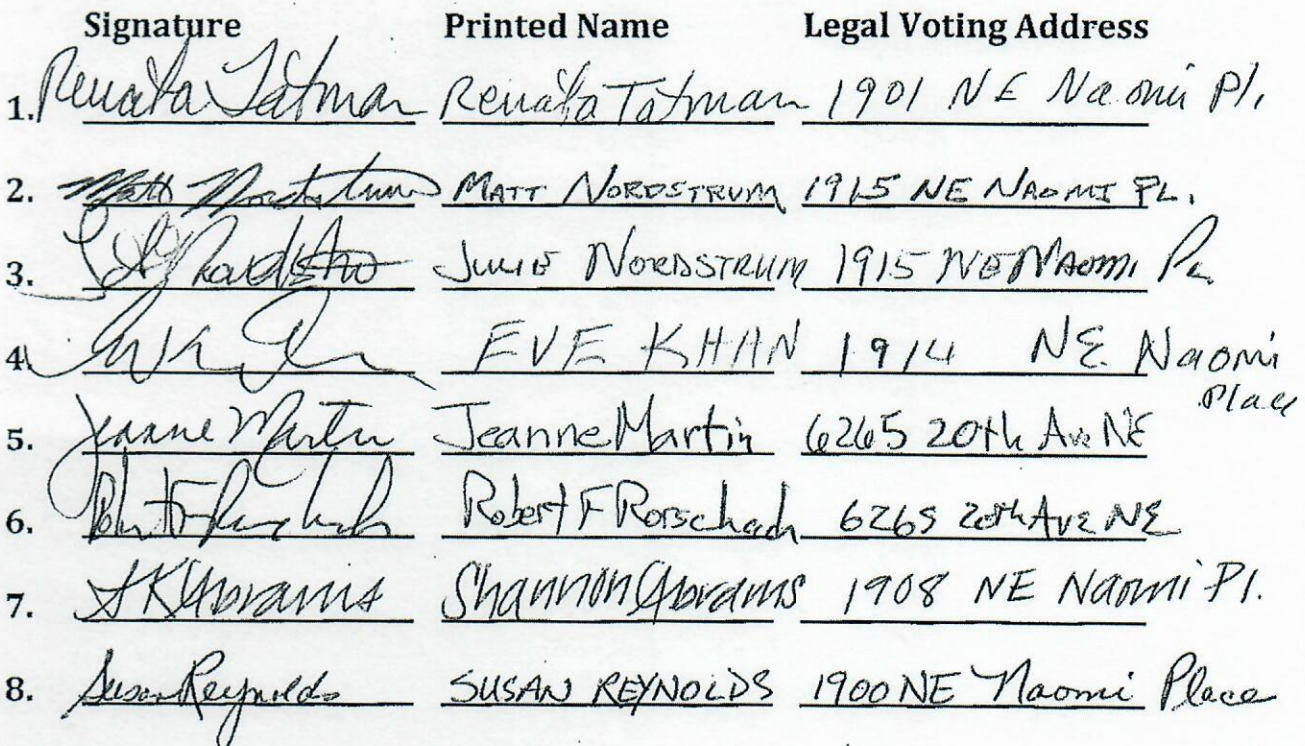 Signature Printed Name Legal Voting Address
1. Renata Tatman Renata Tatman 1901 NE Naomi Pl.
2. Matt Nordstrum MATT NORDSTRUM 1915 NE NAOMI PL.
3. JULIE NORDSTRUM 1915 NE NAOMI PL
4. EVE KHAN 1914 NE Naomi
Place
5. Jeanne Martin Jeanne Martin 6265 20th Ave NE
6. Robert F Rorschach Robert F Rorschach 6265 20th Ave NE
7. SK Abrams Shannon Abrams 1908 NE Naomi Pl.
8. Susan Reynolds SUSAN REYNOLDS 1900 NE Naomi Place